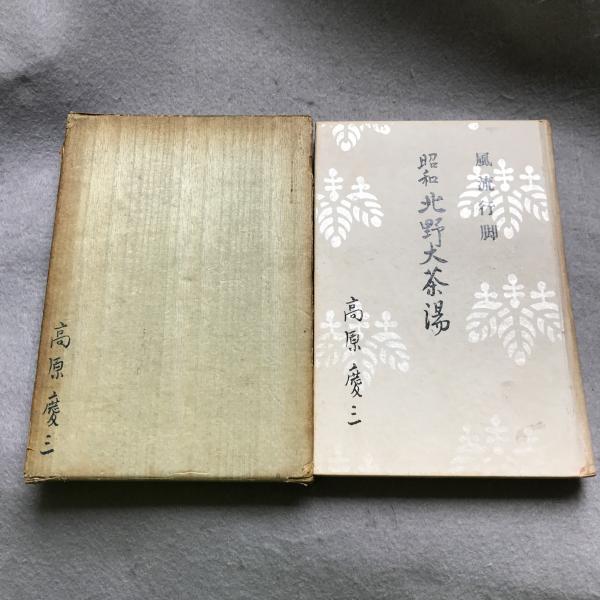 風流行脚
昭和北野大茶湯
高原慶三
高原慶三